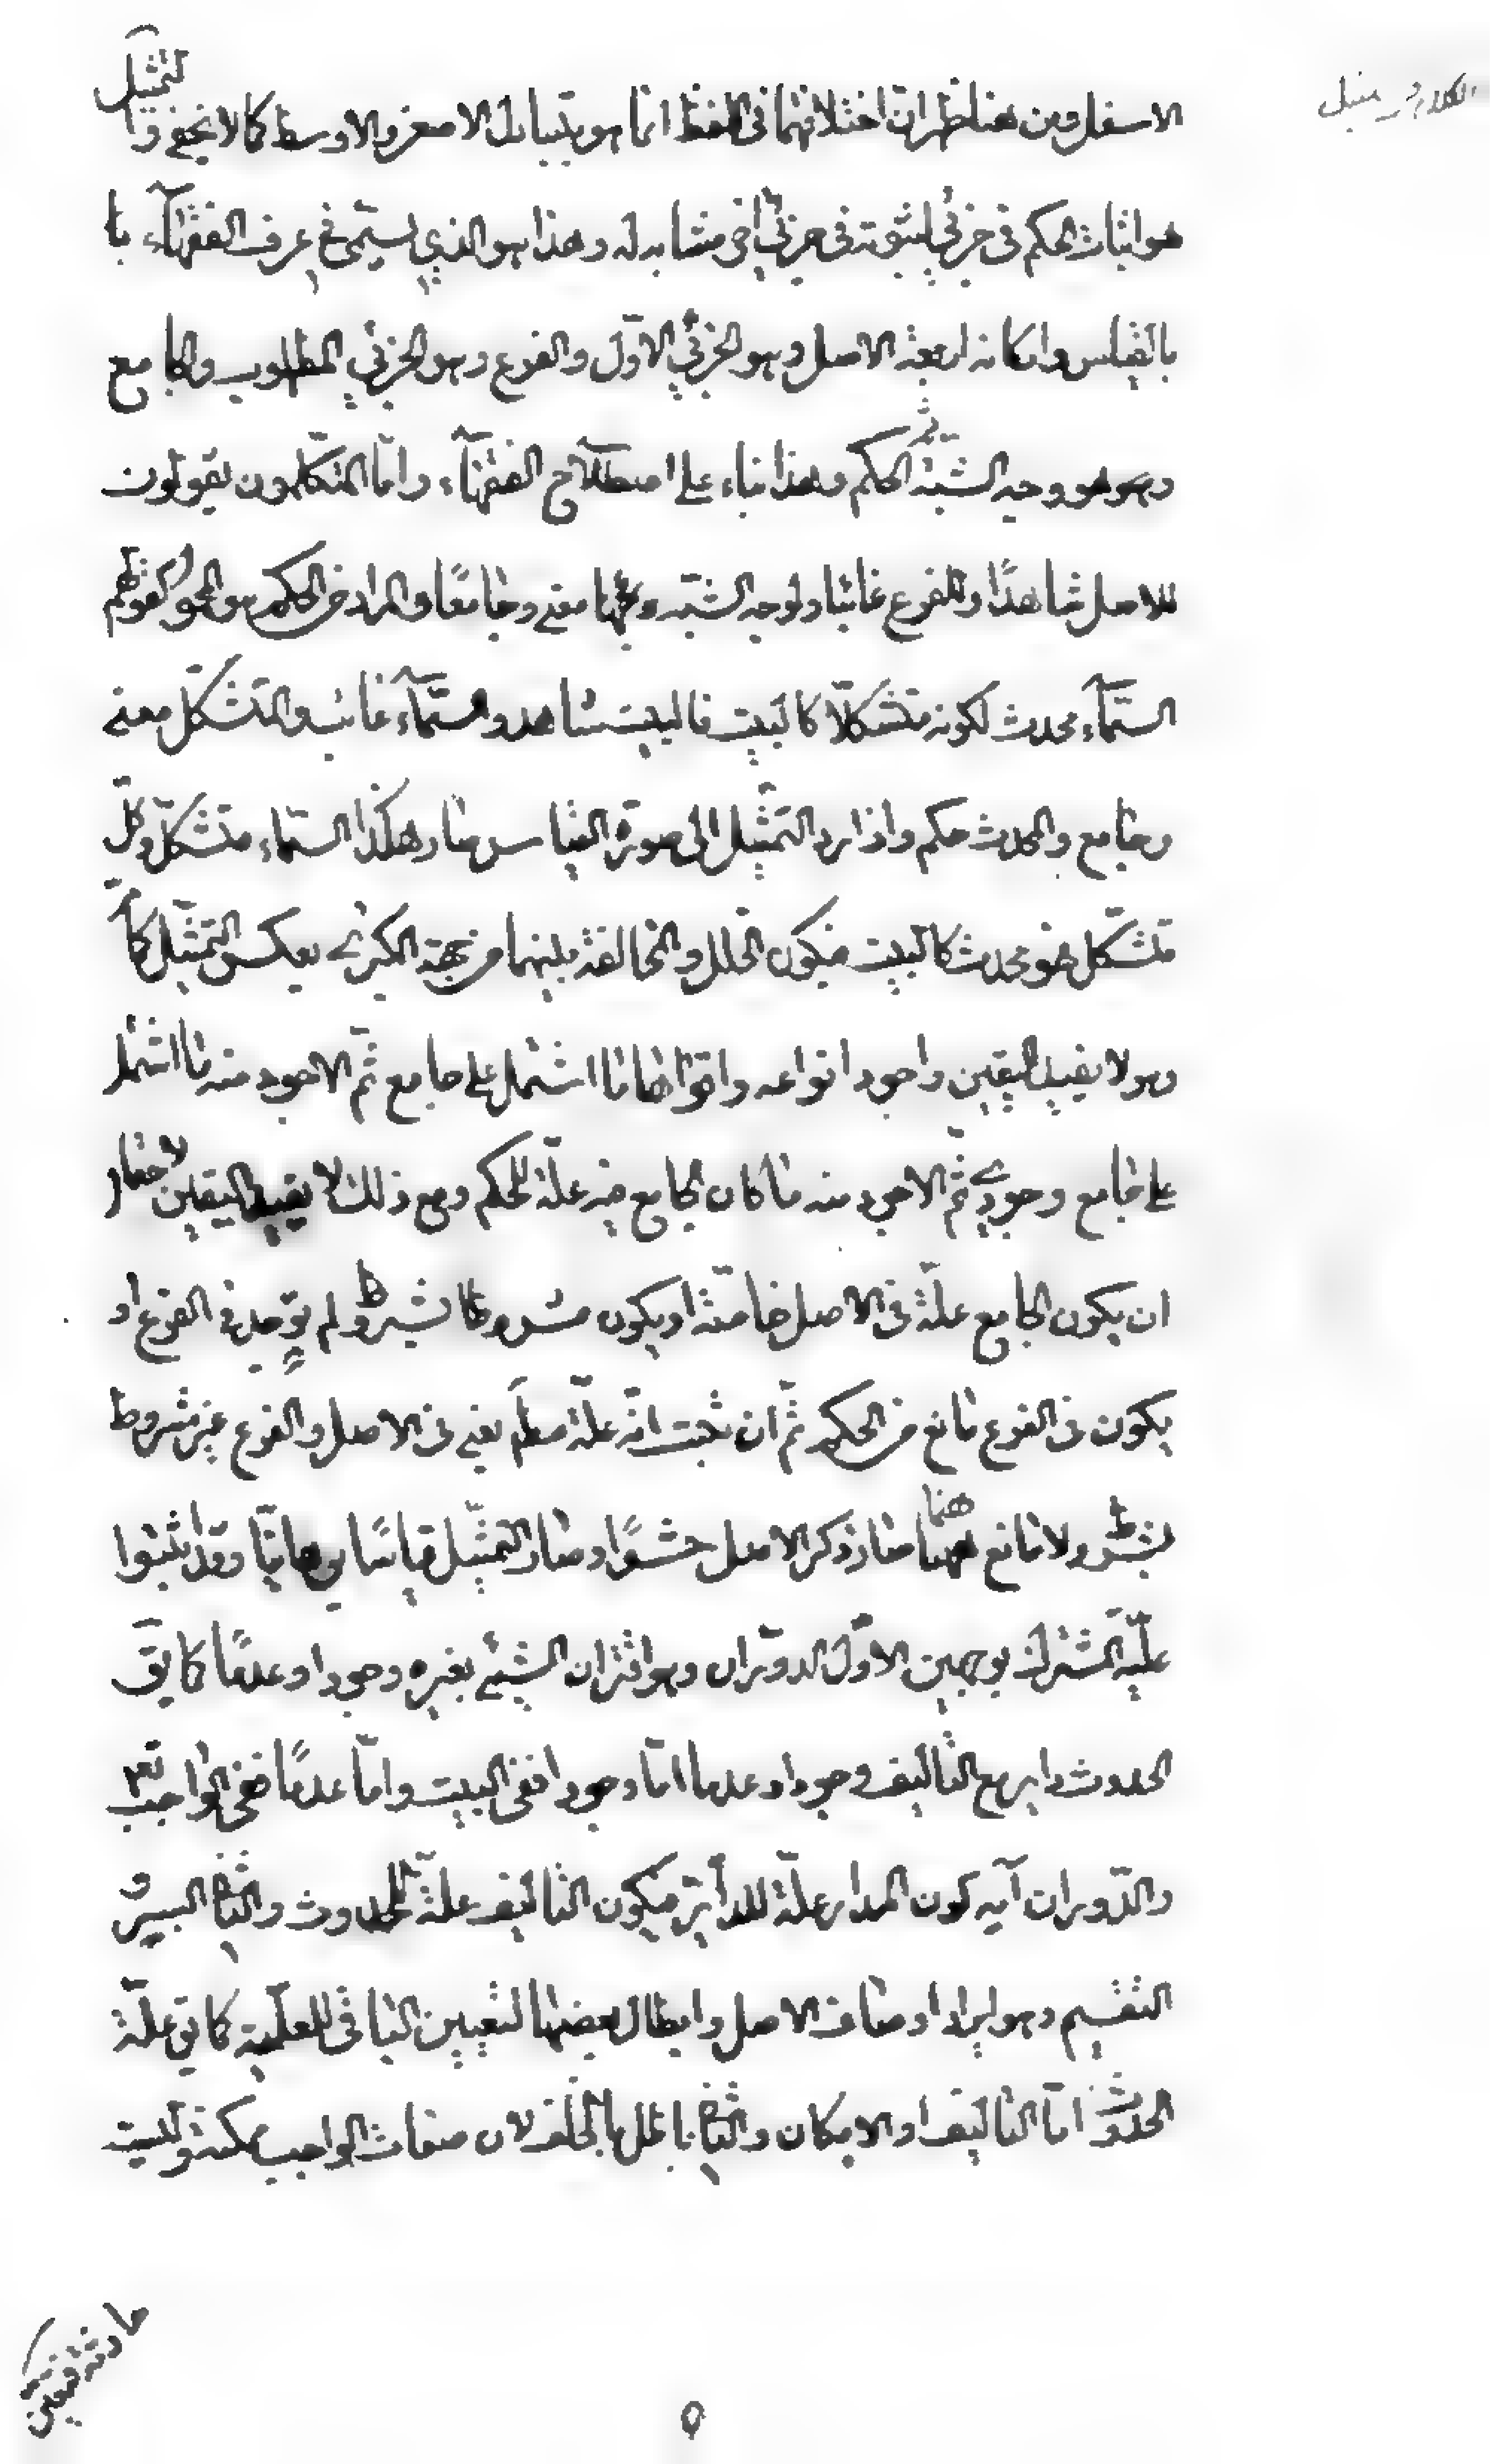 الاسفل ومن هنا ظهر ان اختلافهما فى اللفظ انما هو بتبدل الاصغر والاوسط كما لا يخفى والتمثيل
هو اثبات الحكم فى جزئي لثبوته فى جزئي آخر مشابه له وهذا هو الذي يسمى في عرف الفقهآء با
بالقياس واركانه اربعة الاصل وهو الجزئي الاوّل والفرع وهو الجزئي المطلوب والجامع
وهو وجه الشبه الحكم وهذا بناء على اصطلاح الفقهآء واما المتكلمون يقولون
للاصل شاهدًا وللفرع غائبا ولوجه الشبه معنى وجامعًا والمراد من الحكم هو كقولهم
السّمآء محدث لكونه متشكلاً كالبيت فالبيت شاهد والسّمآء غائب والمتشكّل معنى
وجامع والمحدث حكم واذا رد التمثيل الى صورة القياس صار هكذا السماء متشكل وكلّ
متشكّل فهو محدث كالبيت فيكون الخلل والمخالفة بينهما من جهة الكبرى بعكس التمثيل كما مرّ
وهو لا يفيد اليقين واجود انواعه واقواها ما اشتمل على جامع ثمّ الاجود منه ما اشتمل
على جامع وجودي ثم الاجود منه ما كان الجامع فيه علّة للحكم ومع ذلك لا يفيد اليقين لاحتمال
ان يكون الجامع علّة فى الاصل خاصّة او يكون مشروطا بشرط ولم يوجد فى الفرع او
يكون فى الفرع مانع من الحكم ثمّ ان ثبت انّه علّة مطلقا يعنى فى الاصل والفرع غير مشروط
بشرط ولا مانع هنا صار ذكر الاصل حشوًا وصار التمثيل قياسًا برهانيّا وقد اثبتوا
علّيّة المشترك بوجهين الاوّل الدّوران وهو اقتران الشيئ بغيره وجودا وعدمًا كما يقـ
الحدوث دائر مع التأليف وجودا وعدما امّا وجودا ففى البيت وامّا عدمًا ففى الواجب تعـ
والدّوران آية كون المدار علّة للدائر فيكون التأليف علّة للحدوث والثاني السبر و
التقسيم وهو ايراد اوصاف الاصل وابطال بعضها لتعيين الباقى للعلّية كما يق علّة
الحدوث امّا التأليف او الامكان والثاني باطل بالتخلف لان صفات الواجب ممكنة وليست